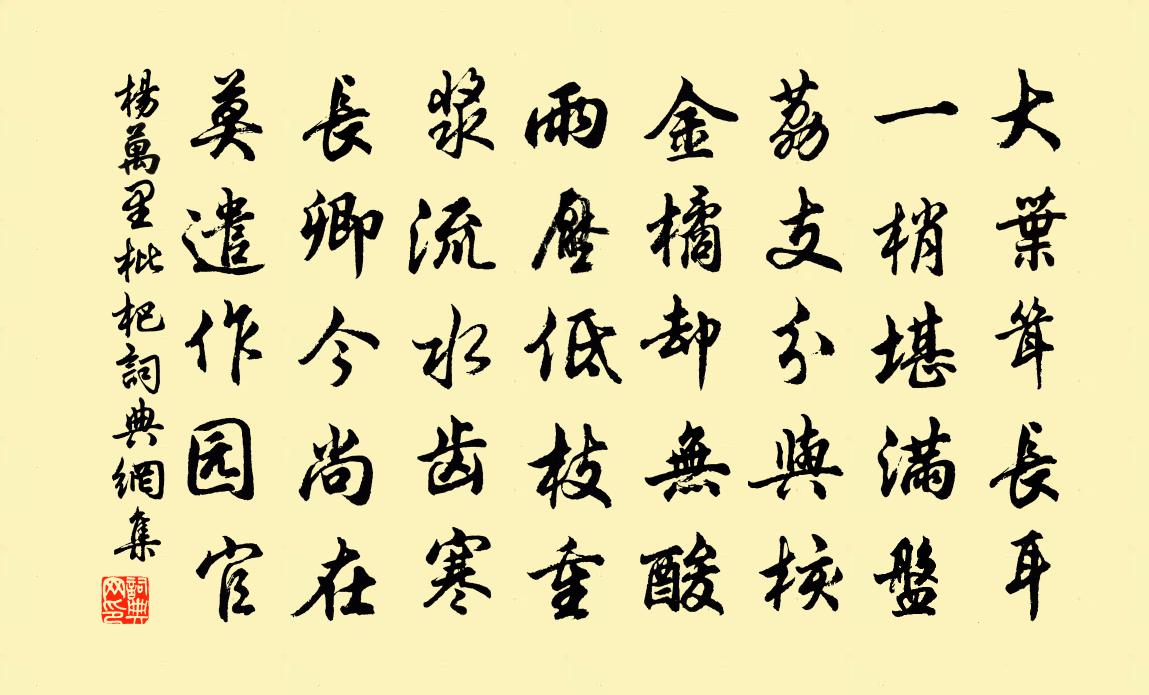 大葉耸長耳
一梢堪滿盤
荔支分與核
金橘却無酸
雨壓低枝重
漿流水齿寒
長卿今尚在
莫遣作园官
楊萬里枇杷詞典網集
詞典网印